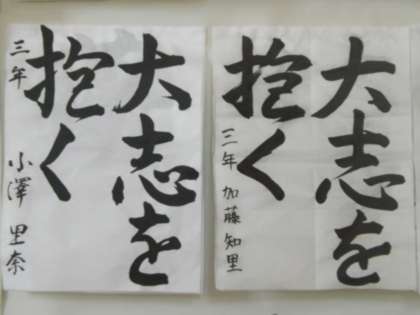 大志を
抱く
三年 加藤知里
大志を
抱く
三年 小澤里奈